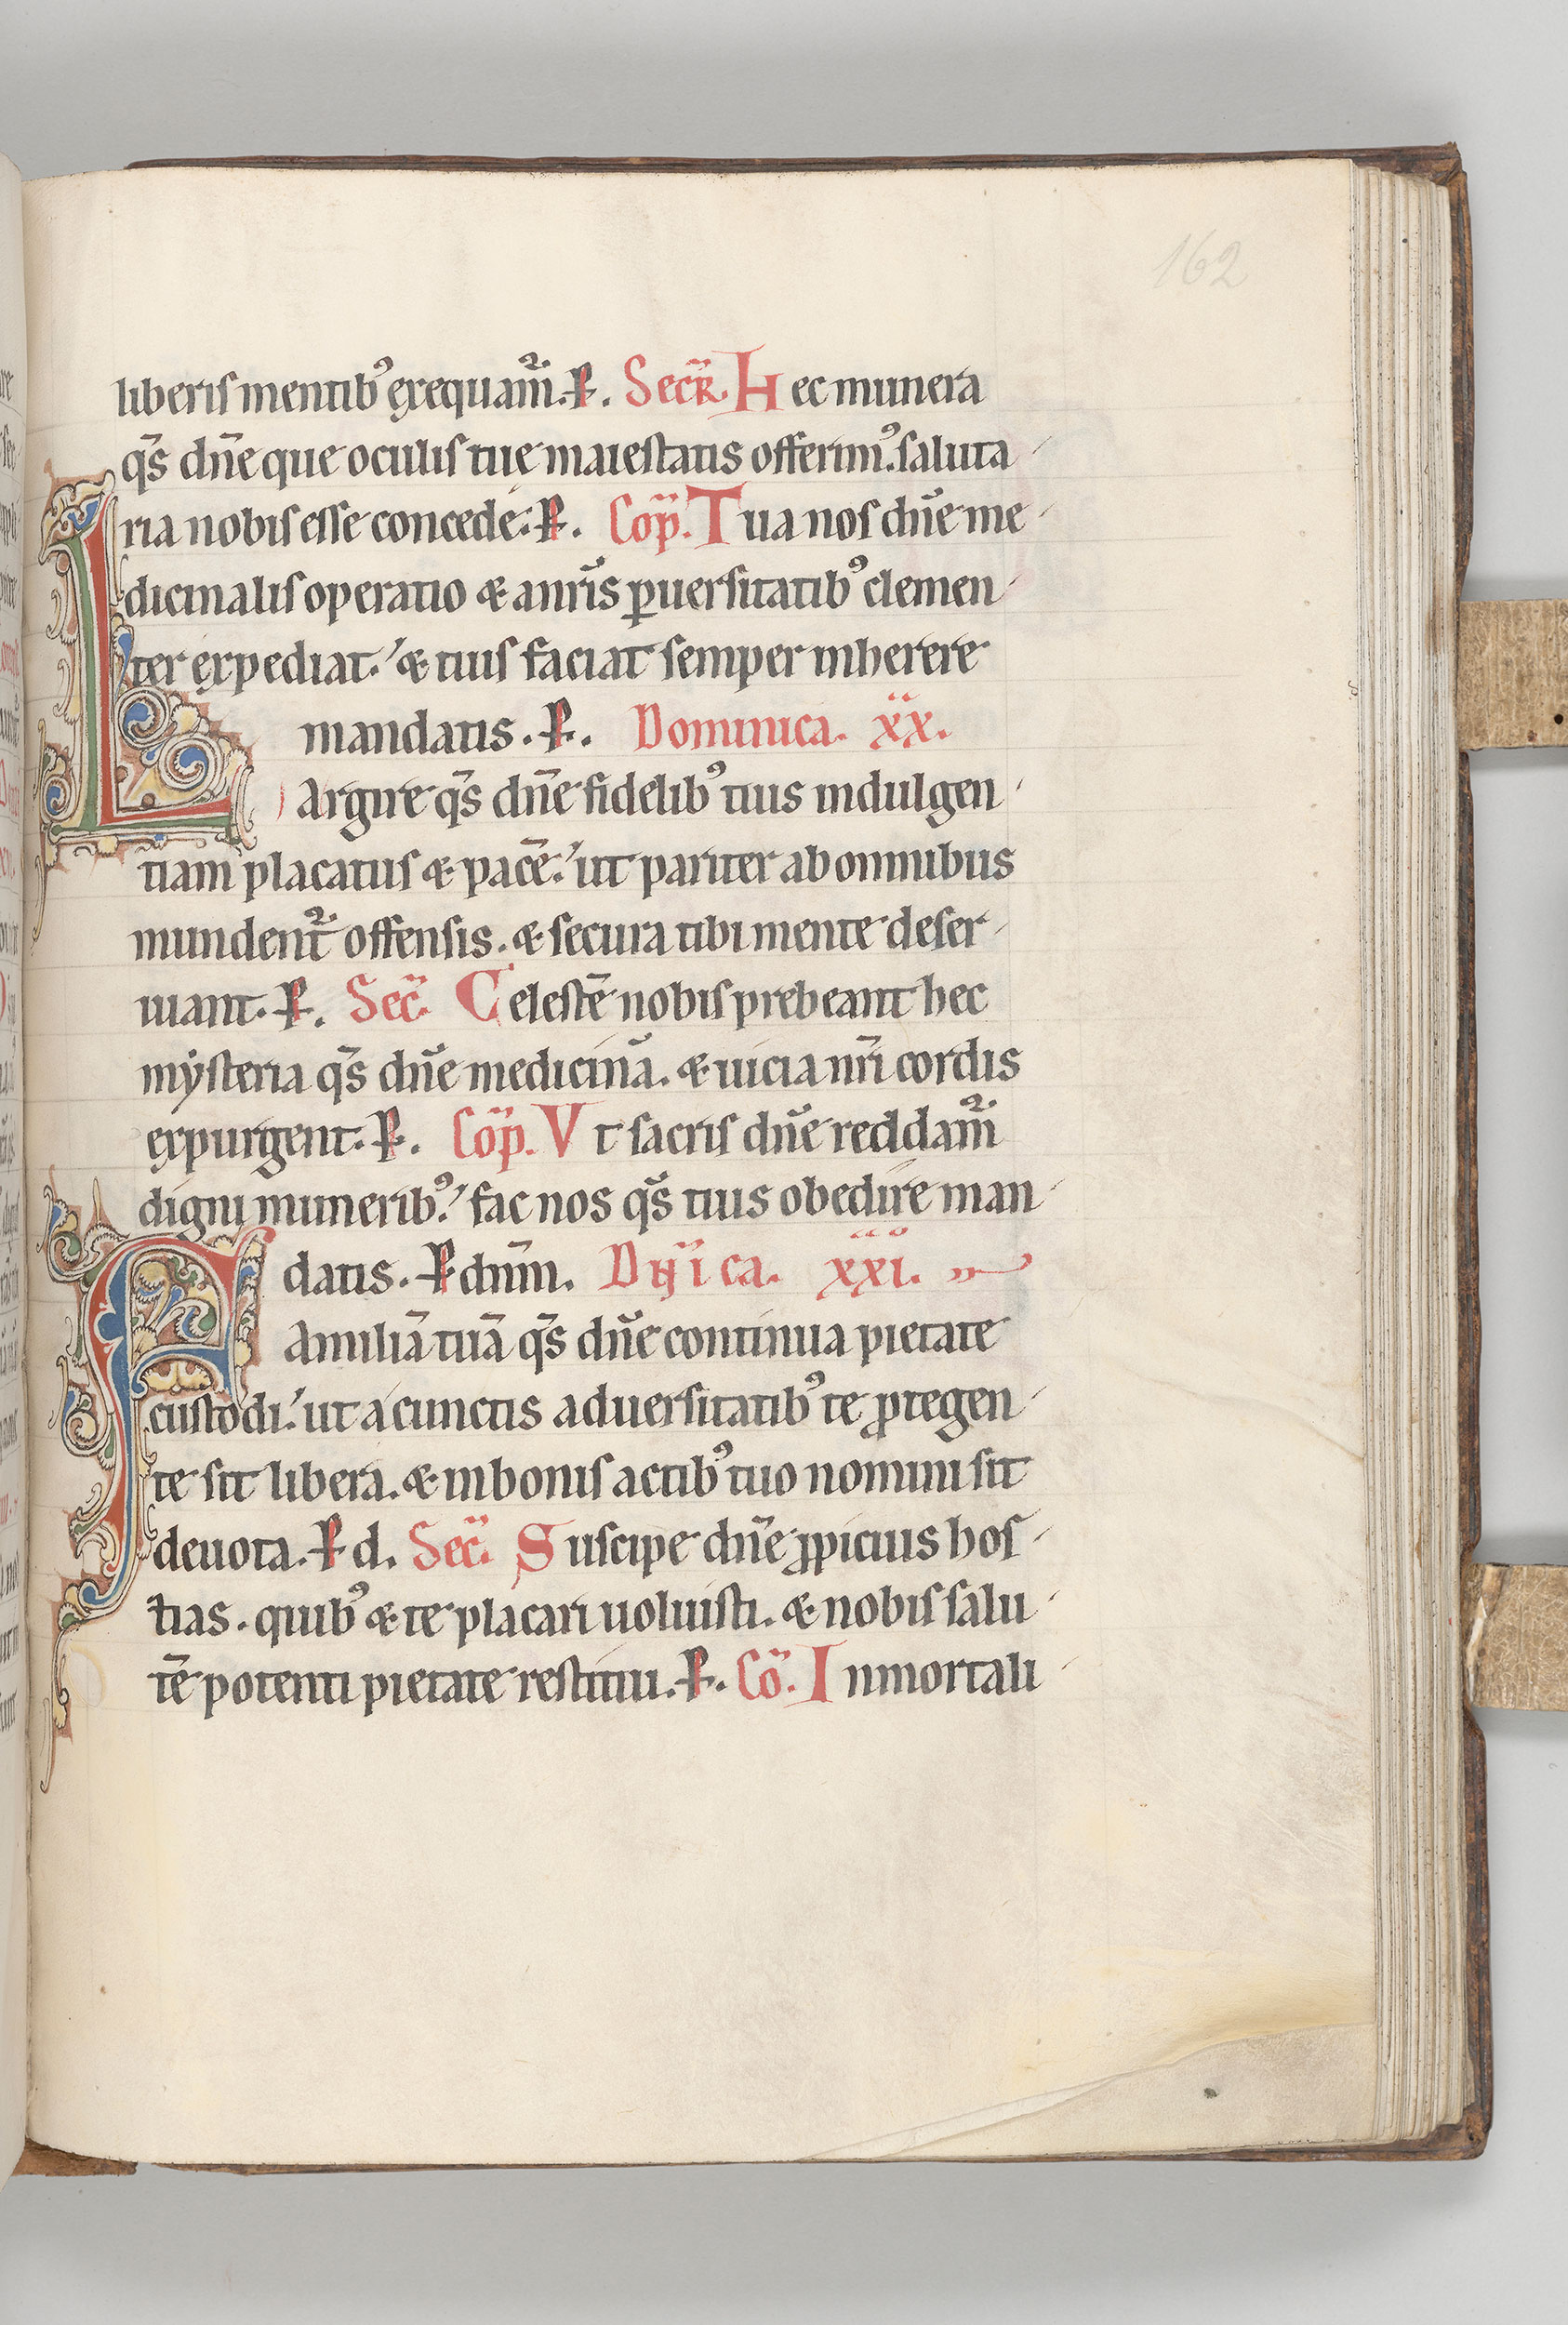 162
liberis mentib⁹ exequam̃. P. Secr̃. Hec munera
q̃s dñe que oculis tue maiestatis offerim⁹. saluta
ria nobis esse concede. P. Cop̃. Tua nos dñe me
dicinalis operatio & a nr̃is ꝑuersitatib⁹ clemen
ter expediat. & tuis faciat semper inherere
mandatis. P. Dominica. xx.
Largire q̃s dñe fidelib⁹ tuis indulgen
tiam placatus & pacē. ut pariter ab omnibus
mundent̃ offensis. & secura tibi mente deser
uiant. P. Sec̃. Celestē nobis prebeant hec
mẏsteria q̃s dñe medicinā. & uicia nr̃i cordis
expurgent. P. Cōp. Vt sacris dñe reddam̃
digni munerib⁹. fac nos q̃s tuis obedire man
datis. P dnm̄. Dñica. xxi.
Familiā tuā q̃s dñe continua pietate
custodi. ut a cunctis aduersitatib⁹ te ꝓtegen
te sit libera. & in bonis actib⁹ tuo nomini sit
deuota. P d. Sec̃. Suscipe dñe ꝓpicius hos
tias. quib⁹ & te placari uoluisti. & nobis salu
tē potenti pietate restitui. P. Cō. Inmortali